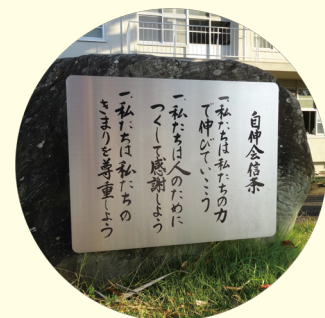 自伸会信条
一、私たちは私たちの力
で伸びていこう
一、私たちは人のために
つくして感謝しよう
一、私たちは私たちの
きまりを尊重しよう